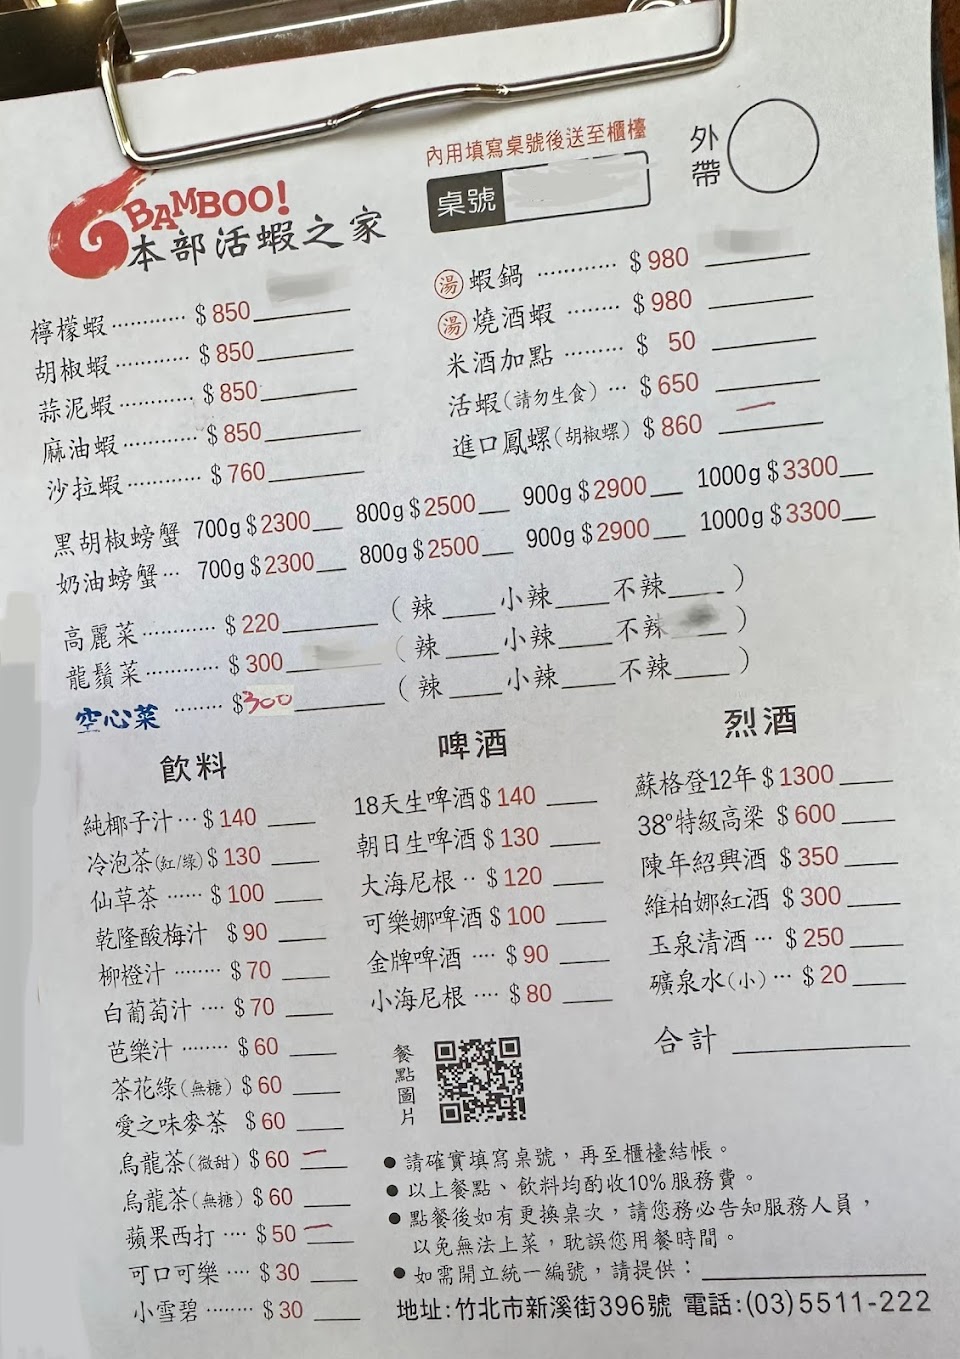 內用填寫桌號後送至櫃檯
桌號
外帶
BAMBOO!
本部活蝦之家
檸檬蝦 ············ $ 850
胡椒蝦 ············ $ 850
蒜泥蝦 ············ $ 850
麻油蝦 ············ $ 850
沙拉蝦 ············ $ 760
湯 蝦鍋 ············ $ 980
湯 燒酒蝦 ········ $ 980
米酒加點 ········· $ 50
活蝦(請勿生食) ··· $ 650
進口鳳螺(胡椒螺) $ 860
黑胡椒螃蟹 700g $ 2300 800g $ 2500 900g $ 2900 1000g $ 3300
奶油螃蟹··· 700g $ 2300 800g $ 2500 900g $ 2900 1000g $ 3300
高麗菜············ $ 220 ( 辣 小辣 不辣 )
龍鬚菜············ $ 300 ( 辣 小辣 不辣 )
空心菜 ········ $300 ( 辣 小辣 不辣 )
飲料
純椰子汁··· $ 140
冷泡茶(紅/綠) $ 130
仙草茶 ······ $ 100
乾隆酸梅汁 $ 90
柳橙汁 ········ $ 70
白葡萄汁 ···· $ 70
芭樂汁 ········ $ 60
茶花綠(無糖) $ 60
愛之味麥茶 $ 60
烏龍茶(微甜) $ 60
烏龍茶(無糖) $ 60
蘋果西打 ···· $ 50
可口可樂 ···· $ 30
小雪碧 ········ $ 30
啤酒
18天生啤酒 $ 140
朝日生啤酒 $ 130
大海尼根 ·· $ 120
可樂娜啤酒 $ 100
金牌啤酒 ···· $ 90
小海尼根 ···· $ 80
烈酒
蘇格登12年 $ 1300
38°特級高梁 $ 600
陳年紹興酒 $ 350
維柏娜紅酒 $ 300
玉泉清酒 ··· $ 250
礦泉水(小) ··· $ 20
合計
餐點圖片
● 請確實填寫桌號，再至櫃檯結帳。
● 以上餐點、飲料均酌收10%服務費。
● 點餐後如有更換桌次，請您務必告知服務人員，
以免無法上菜，耽誤您用餐時間。
● 如需開立統一編號，請提供：
地址:竹北市新溪街396號 電話:(03)5511-222